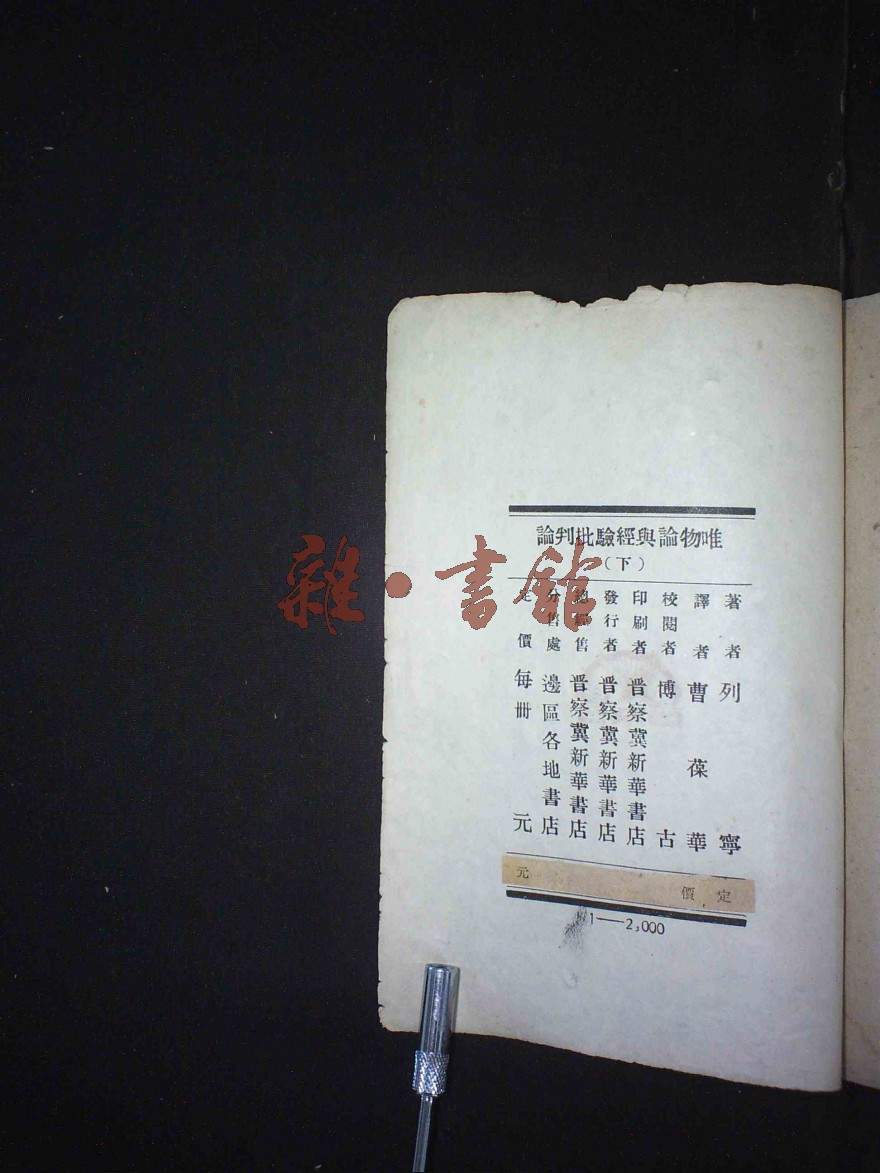 唯物論與經驗批判論
（下）
著者 列寧
譯者 曹葆華
校閱者 博古
印刷者 晋察冀新華書店
發行者 晋察冀新華書店
總經售 晋察冀新華書店
分售處 邊區各地書店
定價 每冊 元
定價 元
1——2,000
雜·書館